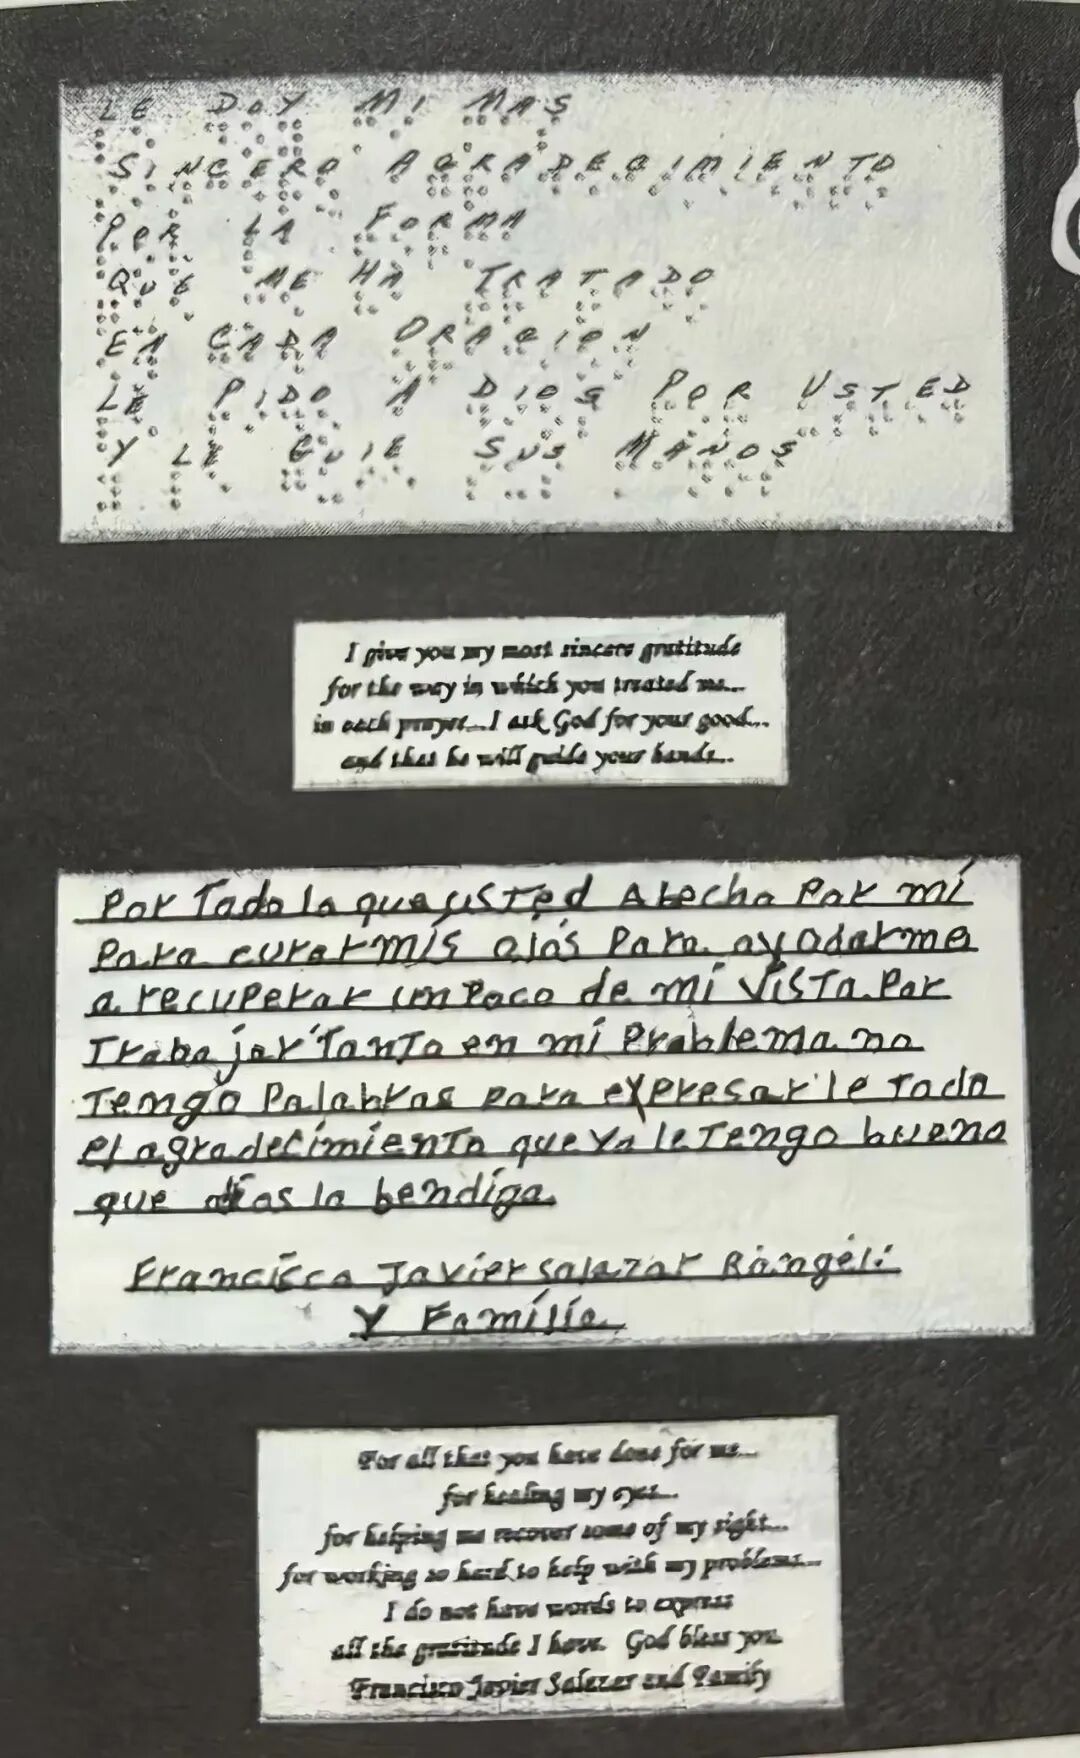 LE DOY MI MAS
SINCERO AGRADECIMIENTO
POR LA FORMA
QUE ME HA TRATADO
EN CADA ORACION
LE PIDO A DIOS POR USTED
Y LE GUIE SUS MANOS
I give you my most sincere gratitude
for the way in which you treated me...
in each prayer...I ask God for your good...
and that he will guide your hands...
Por Todo lo que usTed A hecho Por mí
Para curar mis ojos Para ayodarme
a recuperar un Poco de mi VisTa. Por
Trabajar TanTo en mi Problema no
Tengo Palabras Para expresar le Todo
el agradecimienTo que Yo le Tengo bueno
que dios lo bendiga.
Francisco Javier Salazar Rangel.
Y Familia.
For all that you have done for me...
for healing my eyes...
for helping me recover some of my sight...
for working so hard to help with my problems...
I do not have words to express
all the gratitude I have. God bless you.
Francisco Javier Salazar and Family